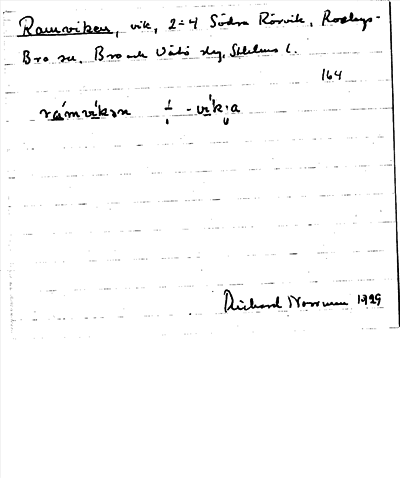 Ramviken, vik, 2=4 Södra Rörvik, Roslags-
Bro sn, Bro och Vätö skg, Sthlms l.
164
rámvíkən ⸗ -vík:a
Richard Norrman 1929